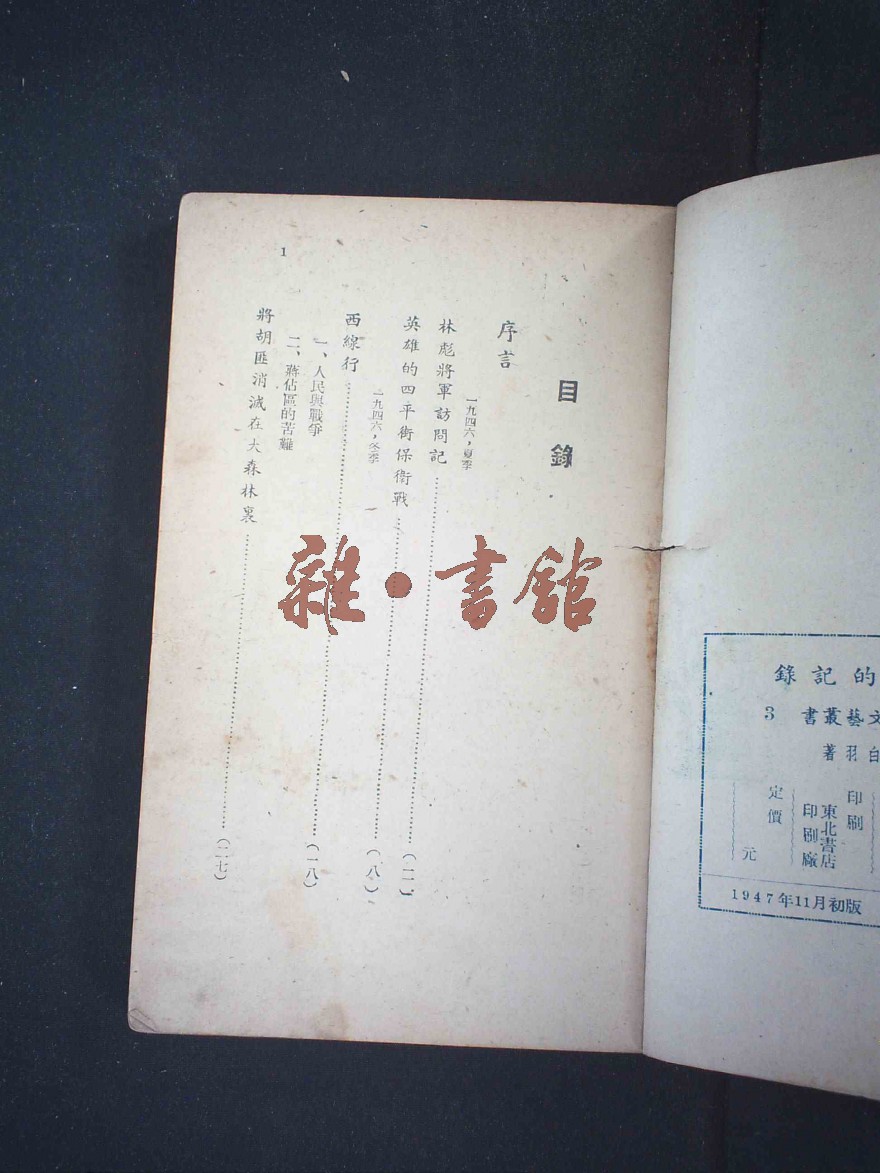 目錄
序言
一九四六，夏季
林彪將軍訪問記……（一）
英雄的四平街保衛戰……（八）
一九四六，冬季
西線行……（一八）
一、人民與戰爭
二、蔣佔區的苦難
將胡匪消滅在大森林裏……（二七）
1
雜·書館
的記錄
文藝叢書 3
白羽著
印刷
東北書店
印刷廠
定價 元
1947年11月初版